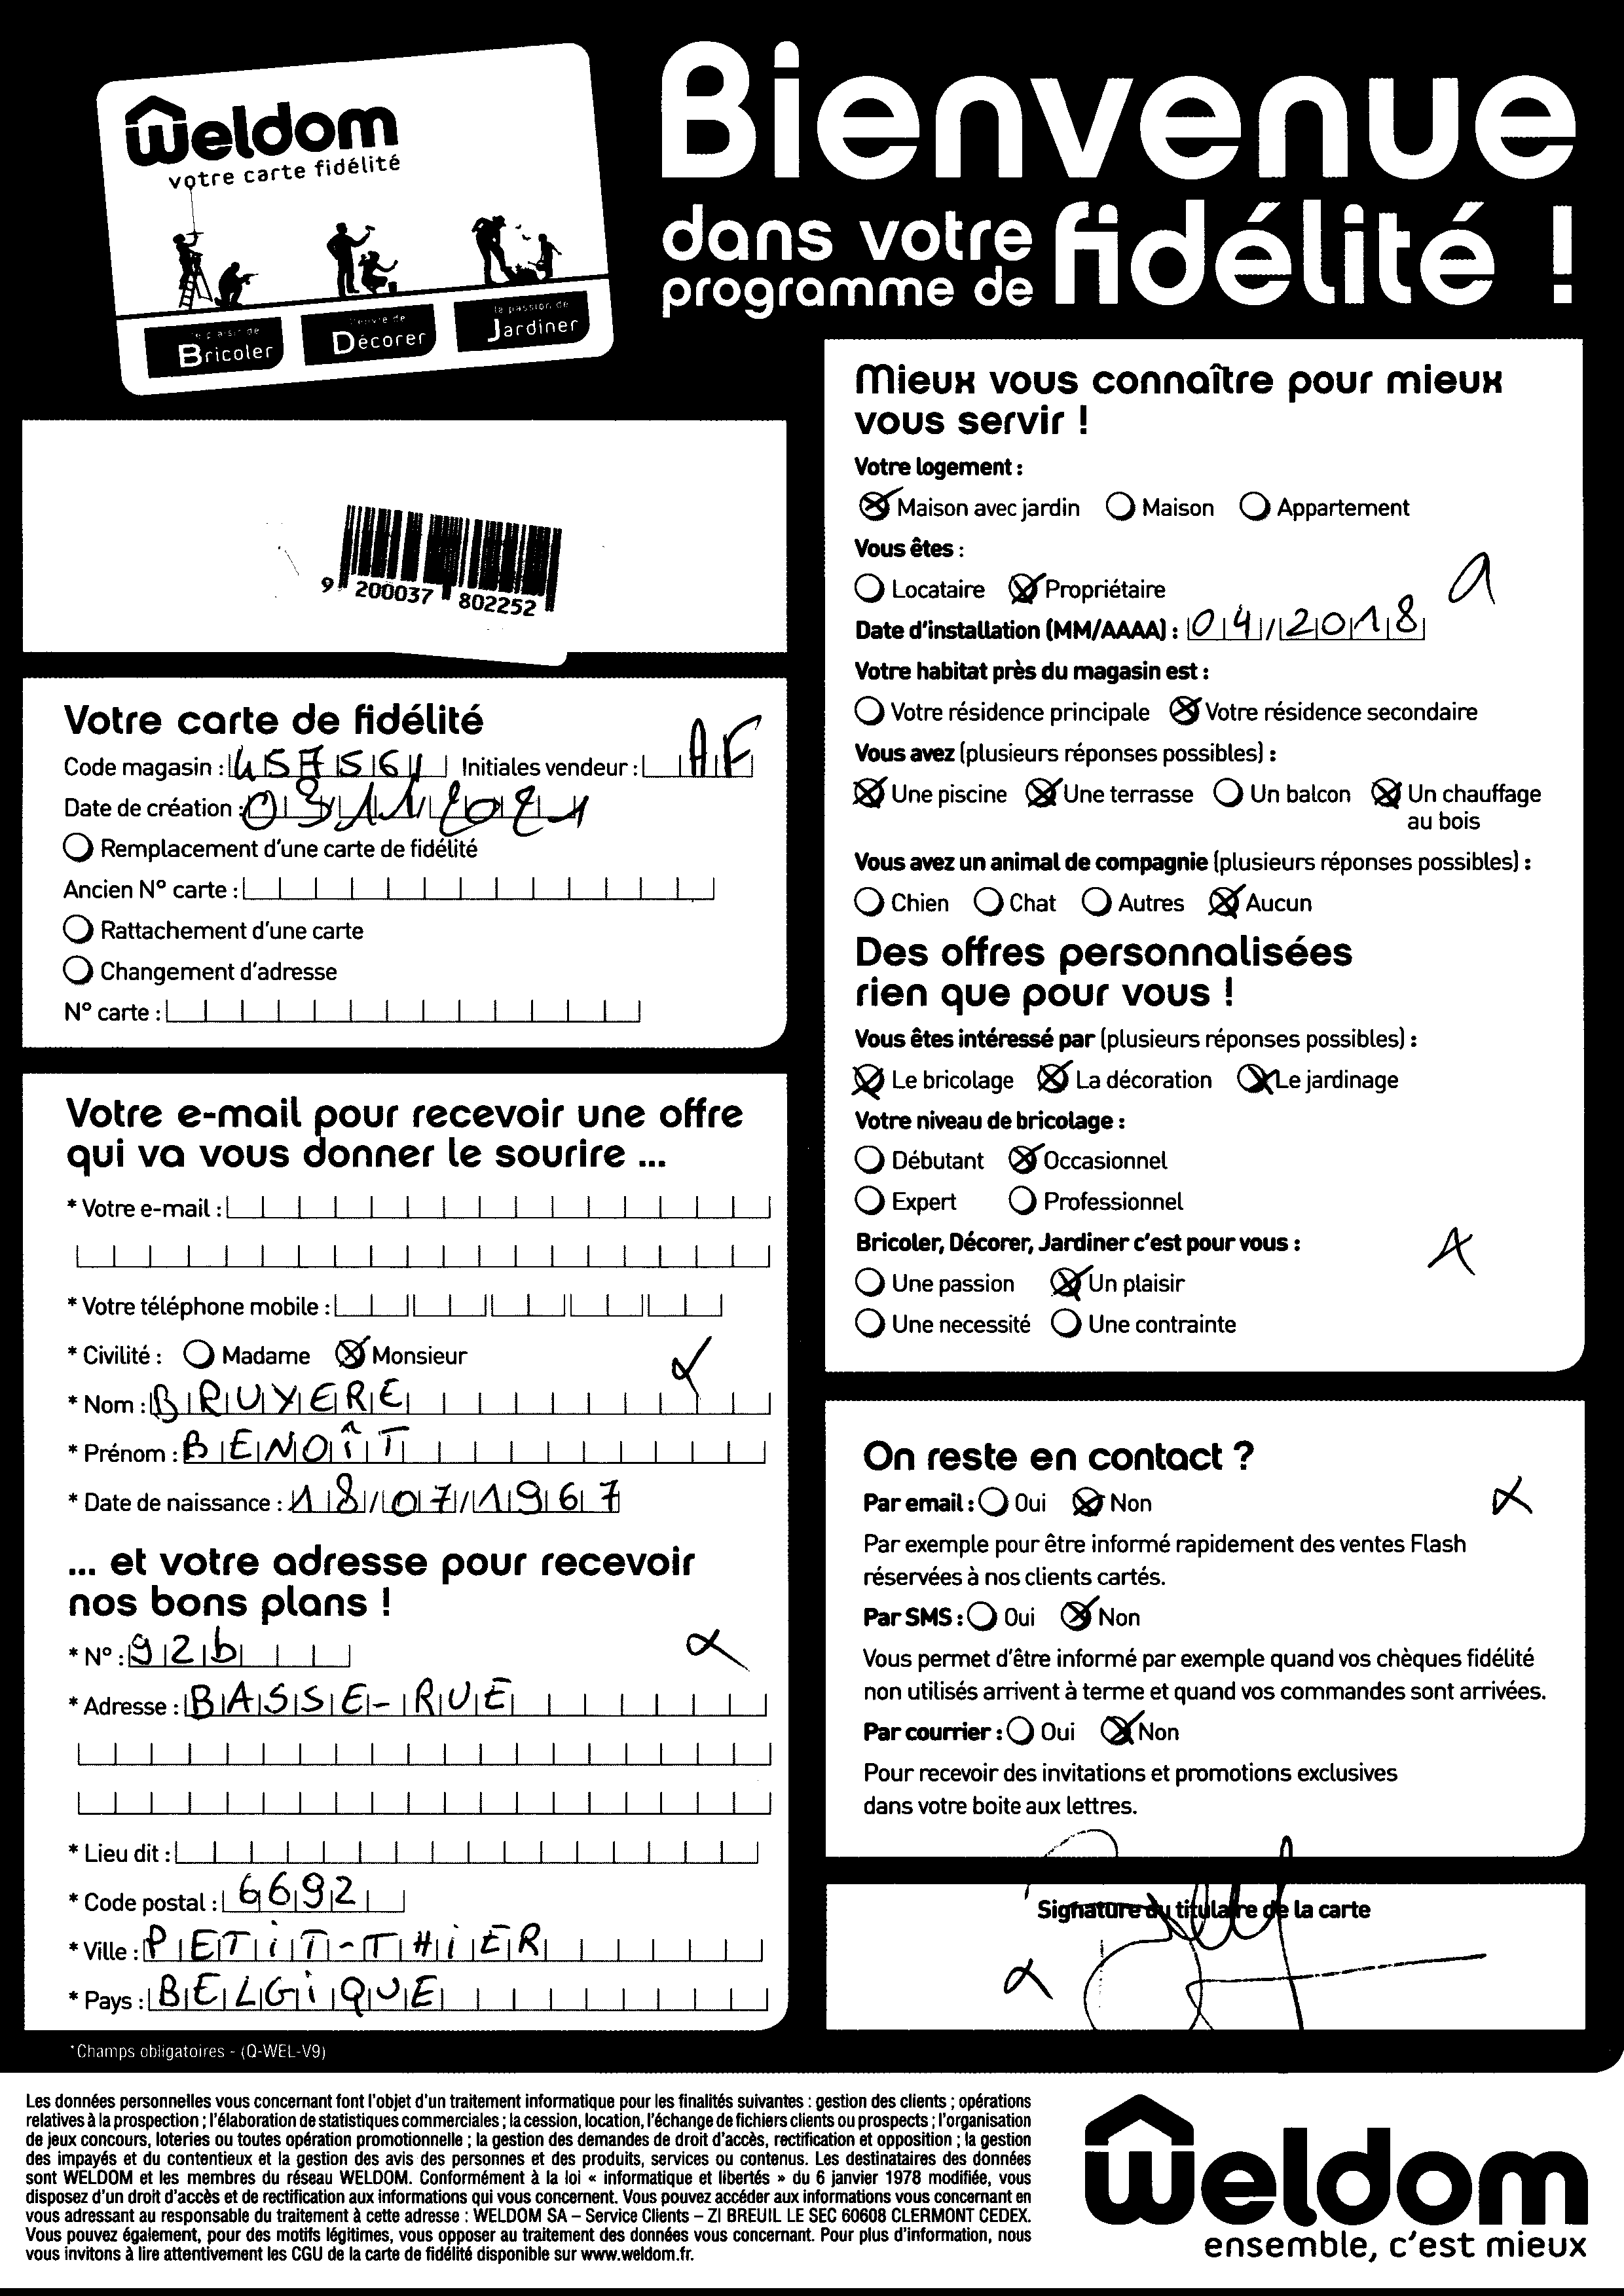 Weldom
votre carte fidélité
le plaisir de
Bricoler
l'envie de
Décorer
la passion de
Jardiner
Bienvenue
dans votre
programme de fidélité !
9 200037 802252
Votre carte de fidélité
Code magasin : Initiales vendeur : AF
Date de création : 03 11 2021
Remplacement d'une carte de fidélité
Ancien N° carte :
Rattachement d'une carte
Changement d'adresse
N° carte :
Votre e-mail pour recevoir une offre
qui va vous donner le sourire ...
* Votre e-mail :
* Votre téléphone mobile :
* Civilité : Madame Monsieur
* Nom : BRUYERE
* Prénom : BENOÎT
* Date de naissance : 18/07/1967
... et votre adresse pour recevoir
nos bons plans !
* N° : 92b
* Adresse : BASSE-RUE
* Lieu dit :
* Code postal : 6692
* Ville : PETIT-THIER
* Pays : BELGIQUE
*Champs obligatoires - (Q-WEL-V9)
Mieux vous connaître pour mieux
vous servir !
Votre logement :
Maison avec jardin Maison Appartement
Vous êtes :
Locataire Propriétaire
Date d'installation (MM/AAAA) : 04/2018
Votre habitat près du magasin est :
Votre résidence principale Votre résidence secondaire
Vous avez (plusieurs réponses possibles) :
Une piscine Une terrasse Un balcon Un chauffage
au bois
Vous avez un animal de compagnie (plusieurs réponses possibles) :
Chien Chat Autres Aucun
Des offres personnalisées
rien que pour vous !
Vous êtes intéressé par (plusieurs réponses possibles) :
Le bricolage La décoration Le jardinage
Votre niveau de bricolage :
Débutant Occasionnel
Expert Professionnel
Bricoler, Décorer, Jardiner c'est pour vous :
Une passion Un plaisir
Une necessité Une contrainte
On reste en contact ?
Par email : Oui Non
Par exemple pour être informé rapidement des ventes Flash
réservées à nos clients cartés.
Par SMS : Oui Non
Vous permet d'être informé par exemple quand vos chèques fidélité
non utilisés arrivent à terme et quand vos commandes sont arrivées.
Par courrier : Oui Non
Pour recevoir des invitations et promotions exclusives
dans votre boite aux lettres.
Signature du titulaire de la carte
Les données personnelles vous concernant font l'objet d'un traitement informatique pour les finalités suivantes : gestion des clients ; opérations
relatives à la prospection ; l'élaboration de statistiques commerciales ; la cession, location, l'échange de fichiers clients ou prospects ; l'organisation
de jeux concours, loteries ou toutes opération promotionnelle ; la gestion des demandes de droit d'accès, rectification et opposition ; la gestion
des impayés et du contentieux et la gestion des avis des personnes et des produits, services ou contenus. Les destinataires des données
sont WELDOM et les membres du réseau WELDOM. Conformément à la loi « informatique et libertés » du 6 janvier 1978 modifiée, vous
disposez d'un droit d'accès et de rectification aux informations qui vous concernent. Vous pouvez accéder aux informations vous concernant en
vous adressant au responsable du traitement à cette adresse : WELDOM SA – Service Clients – ZI BREUIL LE SEC 60608 CLERMONT CEDEX.
Vous pouvez également, pour des motifs légitimes, vous opposer au traitement des données vous concernant. Pour plus d'information, nous
vous invitons à lire attentivement les CGU de la carte de fidélité disponible sur www.weldom.fr.
Weldom
ensemble, c'est mieux